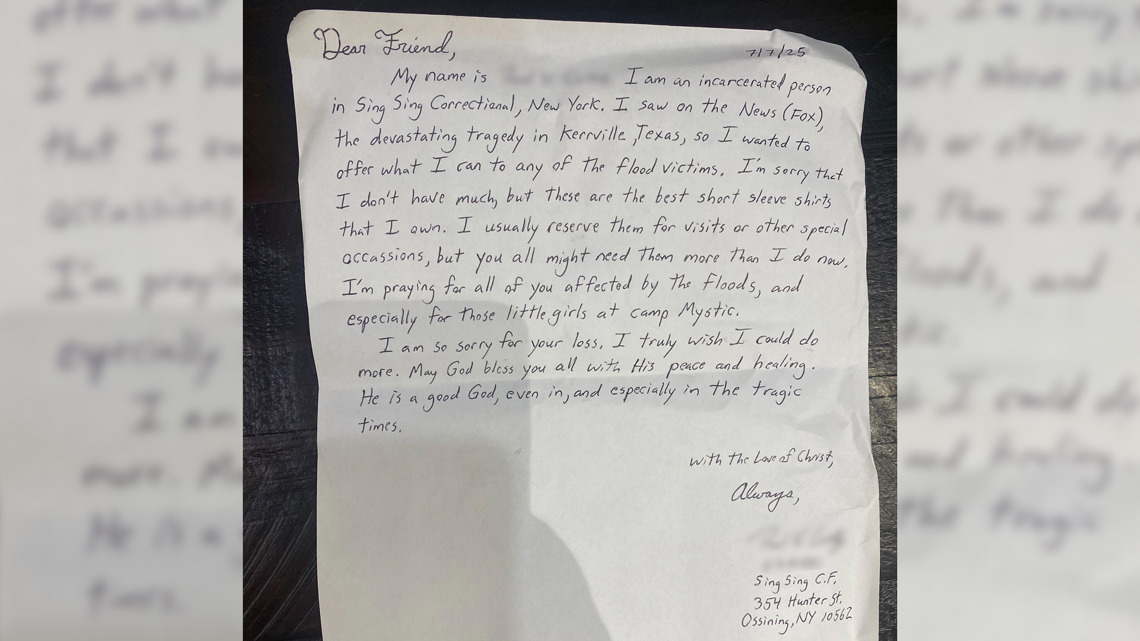 Dear Friend,
7/7/25
My name is I am an incarcerated person
in Sing Sing Correctional, New York. I saw on the News (Fox),
the devastating tragedy in Kerrville, Texas, so I wanted to
offer what I can to any of the flood victims. I'm sorry that
I don't have much, but these are the best short sleeve shirts
that I own. I usually reserve them for visits or other special
occassions, but you all might need them more than I do now.
I'm praying for all of you affected by the floods, and
especially for those little girls at camp Mystic.
I am so sorry for your loss. I truly wish I could do
more. May God bless you all with His peace and healing.
He is a good God, even in, and especially in the tragic
times.
with the Love of Christ,
Always,
Sing Sing C.F.
354 Hunter St.
Ossining, NY 10562